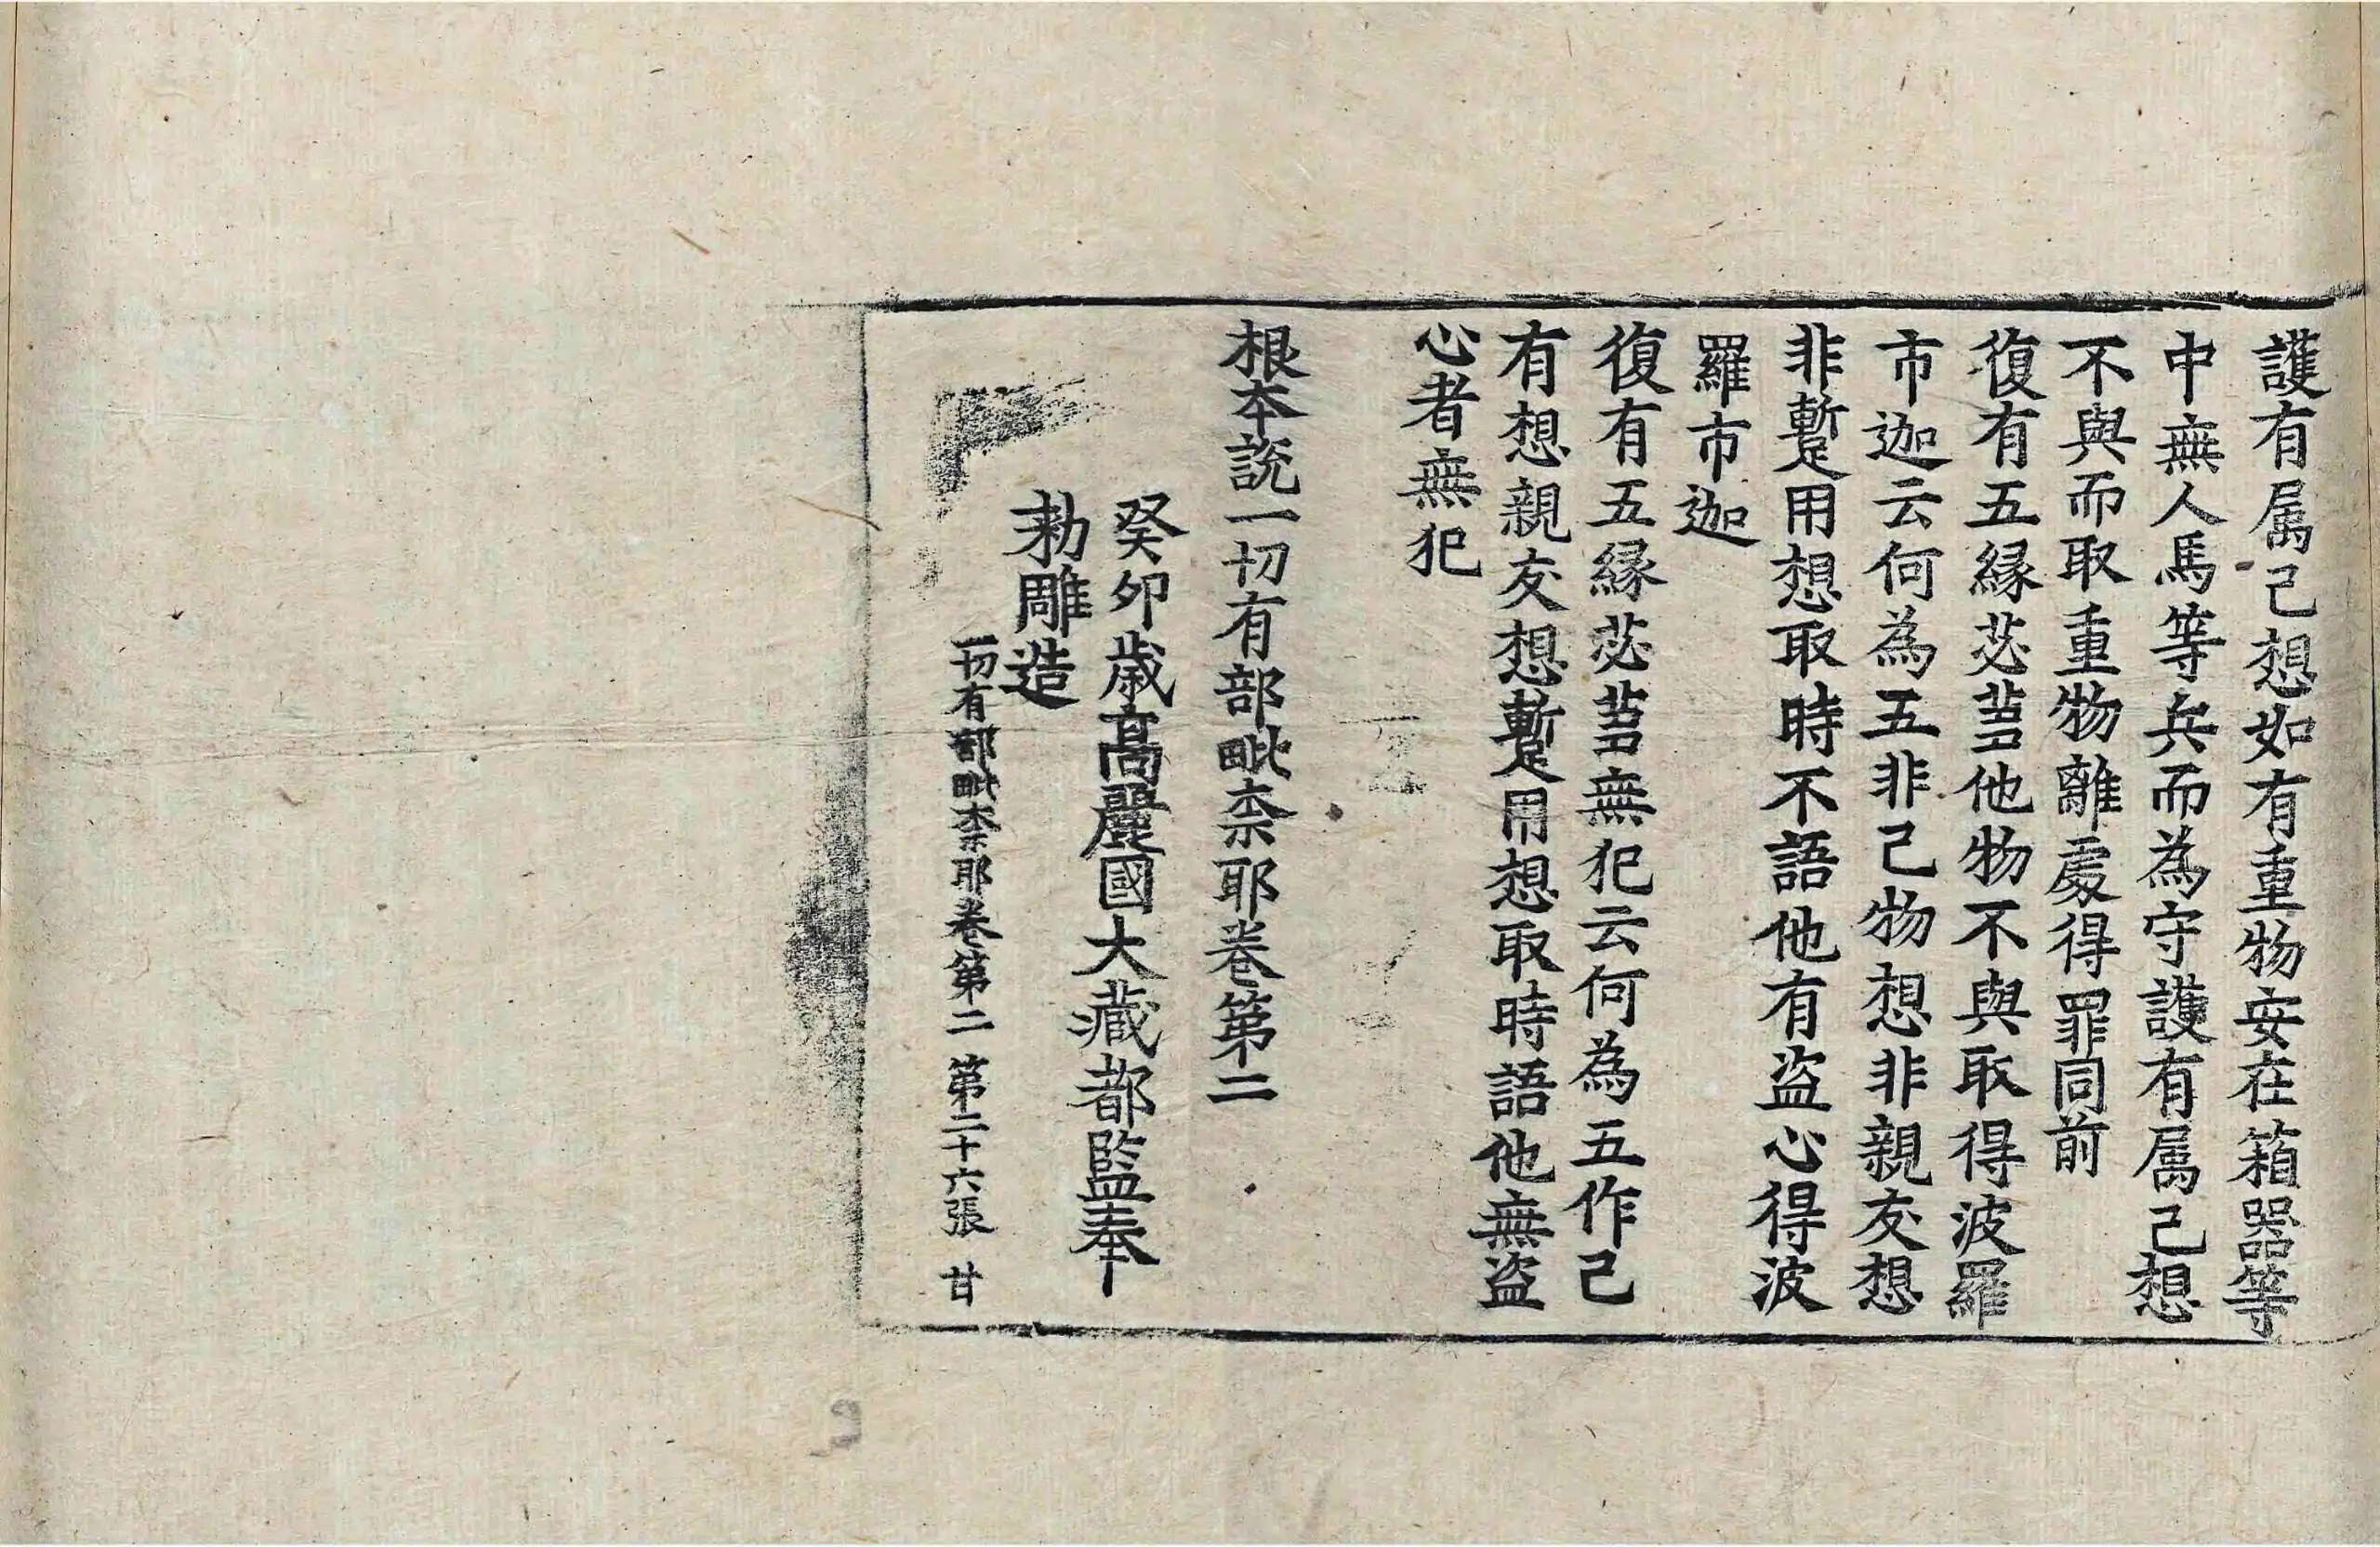 護有属己想如有重物安在箱器等
中無人馬等兵而為守護有属己想
不與而取重物離處得罪同前
復有五緣苾蒭他物不與取得波羅
市迦云何為五非己物想非親友想
非蹔用想取時不語他有盜心得波
羅市迦
復有五緣苾蒭無犯云何為五作己
有想親友想蹔用想取時語他無盜
心者無犯
根本說一切有部毗奈耶卷第二
癸卯歲高麗國大藏都監奉
勑雕造
一切有部毗奈耶卷第二 第二十六張 甘